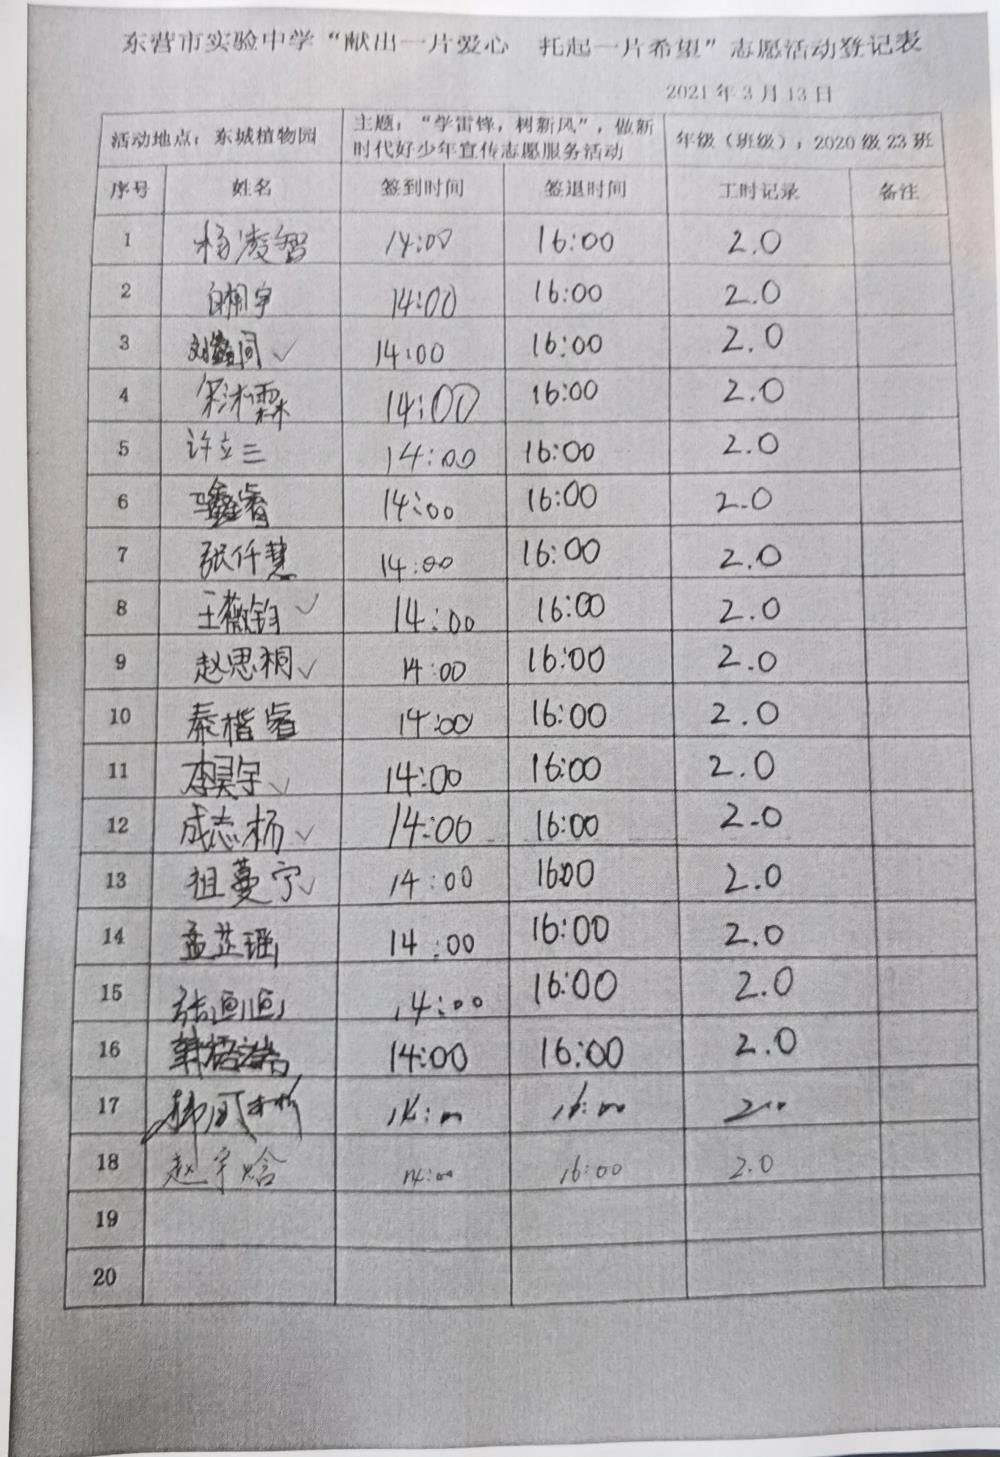 东营市实验中学“献出一片爱心 托起一片希望”志愿活动登记表
2021年3月13日
活动地点：东城植物园 主题：“学雷锋，树新风”，做新时代好少年宣传志愿服务活动 年级（班级）：2020级23班
序号 姓名 签到时间 签退时间 工时记录 备注
1 杨凌智 14:00 16:00 2.0
2 14:00 16:00 2.0
3 ✓ 14:00 16:00 2.0
4 14:00 16:00 2.0
5 许立三 14:00 16:00 2.0
6 14:00 16:00 2.0
7 张仟慧 14:00 16:00 2.0
8 王薇钧 ✓ 14:00 16:00 2.0
9 赵思桐 ✓ 14:00 16:00 2.0
10 秦楷睿 14:00 16:00 2.0
11 李昊宇 ✓ 14:00 16:00 2.0
12 成志杨 ✓ 14:00 16:00 2.0
13 祖蔓宁 ✓ 14:00 16:00 2.0
14 孟芷瑶 14:00 16:00 2.0
15 14:00 16:00 2.0
16 14:00 16:00 2.0
17
18 赵宇晗 14:00 16:00 2.0
19
20